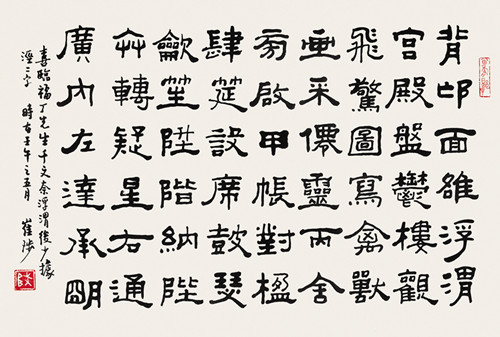 背邙面雒浮渭
宮殿盤鬱樓觀
飛驚圖寫禽獸
畫采僊靈丙舍
旁啟甲帳對楹
肆筵設席鼓瑟
龡笙陞階納陛
弁轉疑星右通
廣內左達承朙
喜臨福丁先生千文奈浮渭後少據
涇二字 時在壬午之五月 崔陟